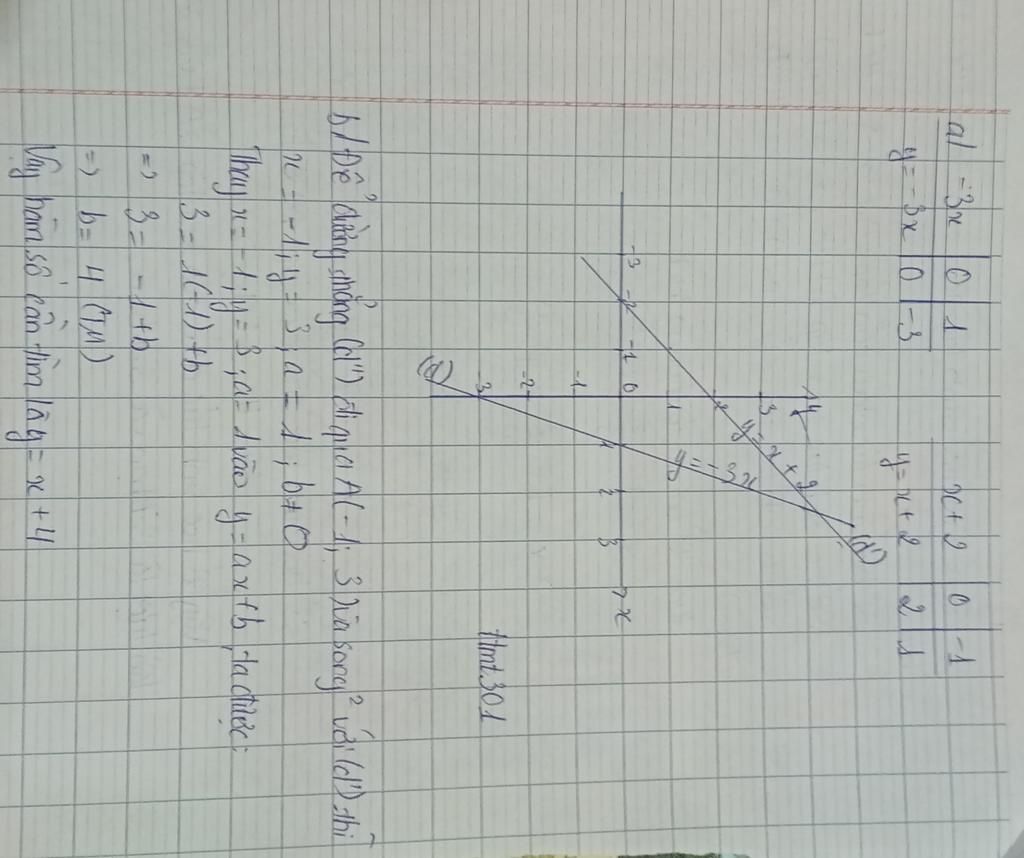 a/ -3x | 0 | 1
y = -3x | 0 | -3
x + 2 | 0 | -1
y = x + 2 | 2 | 1
4
3
2
1
0
-1
-2
-3
-3
-2
-1
1
2
3
x
y = x + 2
y = -3x
(d')
(d)
ttmt301
b/ Để đường thẳng (d'') đi qua A(-1; 3) và song² với (d') thì
x = -1; y = 3; a = 1; b ≠ 0
Thay x = -1; y = 3; a = 1 vào y = ax + b, ta được:
3 = 1(-1) + b
=> 3 = -1 + b
=> b = 4 (TM)
Vậy hàm số cần tìm là y = x + 4